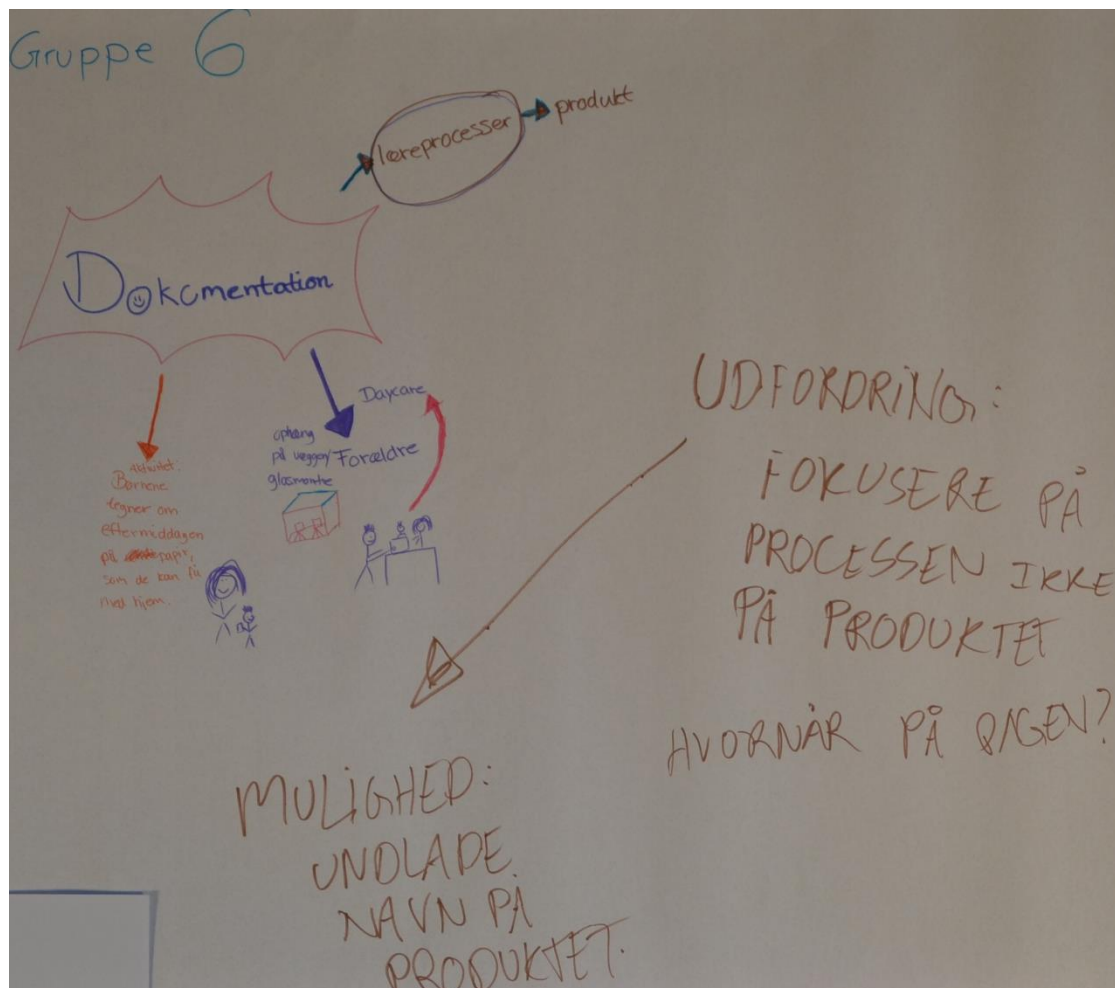 Gruppe 6
læreprocesser
produkt
Dokumentation
Daycare
ophæng
på væggen/
glasmontre
Forældre
Aktivitet:
Børnene
tegner om
eftermiddagen
på papir,
som de kan få
med hjem.
UDFORDRING:
FOKUSERE PÅ
PROCESSEN IKKE
PÅ PRODUKTET
HVORNÅR PÅ DAGEN?
MULIGHED:
UNDLADE
NAVN PÅ
PRODUKTET.